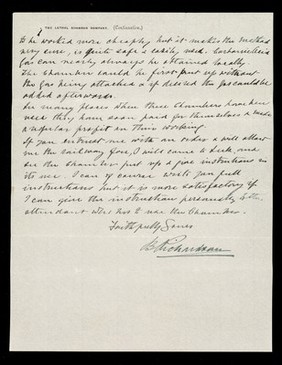 2
THE LETHAL CHAMBER COMPANY. (Continuation.)
to be worked more cheaply but it makes the method
very sure, is quite safe & easily used. Carbonic Acid
Gas can nearly always be obtained locally.
The Chamber could be first put up without
the Gas being attached & if desired the gas could be
added afterwards.
In many places when these Chambers have been
used they have soon paid for themselves & made
a regular profit on their working.
If you instruct me with an order & will allow
me the railway fare, I will come & fix, and
see the Chamber put up & give instructions in
its use. I can of course write you full
instructions but it is more satisfactory if
I can give the instruction personally to the
attendant who has to use the Chamber.
Faithfully Yours
Richardson